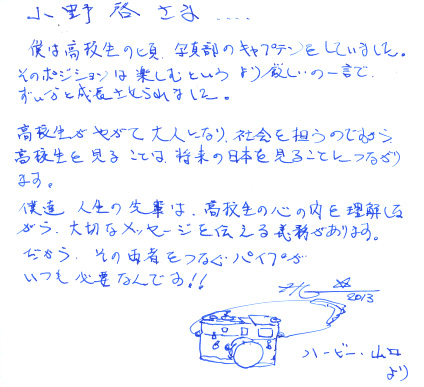 小野啓さま....
僕は高校生の頃、写真部のキャプテンをしていました。
そのポジションは楽しむというより厳しいの一言で、
ずい分と成長させられました。
高校生がやがて大人になり、社会を担うのですから、
高校生を見ることは、将来の日本を見ることにつながり
ます。
僕達 人生の先輩は、高校生の心の内を理解しな
がら、大切なメッセージを伝える義務があります。
だから、その両者をつなぐパイプが
いつも必要なんです!!
2013
ハービー・山口
より